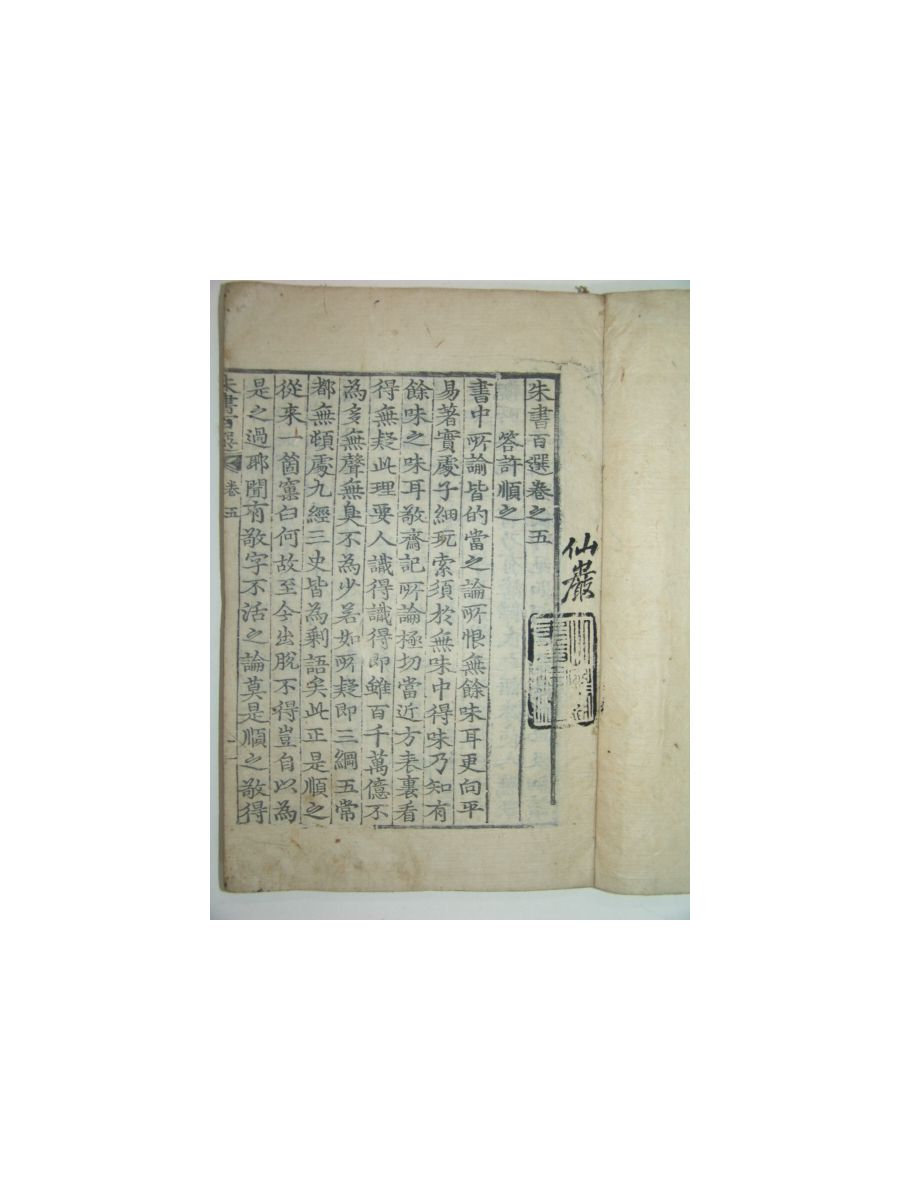 朱書百選卷之五
答許順之
書中所諭皆的當之論所恨無餘味耳更向平
易著實處子細玩索須於無味中得味乃知有
餘味之味耳敬齋記所論極切當近方表裏看
得無疑此理要人識得識得即雖百千萬億不
為多無聲無臭不為少若如所疑即三綱五常
都無頓處九經三史皆為剩語矣此正是順之
從來一箇窠臼何故至今出脫不得豈自以為
是之過耶聞有敬字不活之論莫是順之敬得
朱書百選 卷五 一
仙巖